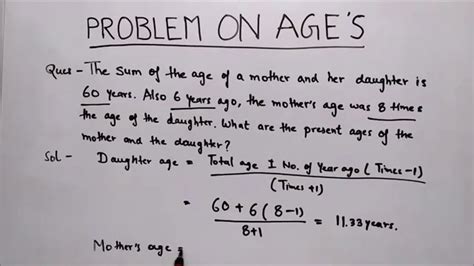 PROBLEM ON AGE'S
Ques - The sum of the age of a mother and her daughter is
60 years. Also 6 years ago, the mother's age was 8 times
the age of the daughter. What are the present ages of the
mother and the daughter?
Sol - Daughter age = Total age I No. of Year ago (Times -1)
(Times +1)
= 60 + 6 ( 8 -1) = 11.33 years.
8+1
Mother's age =